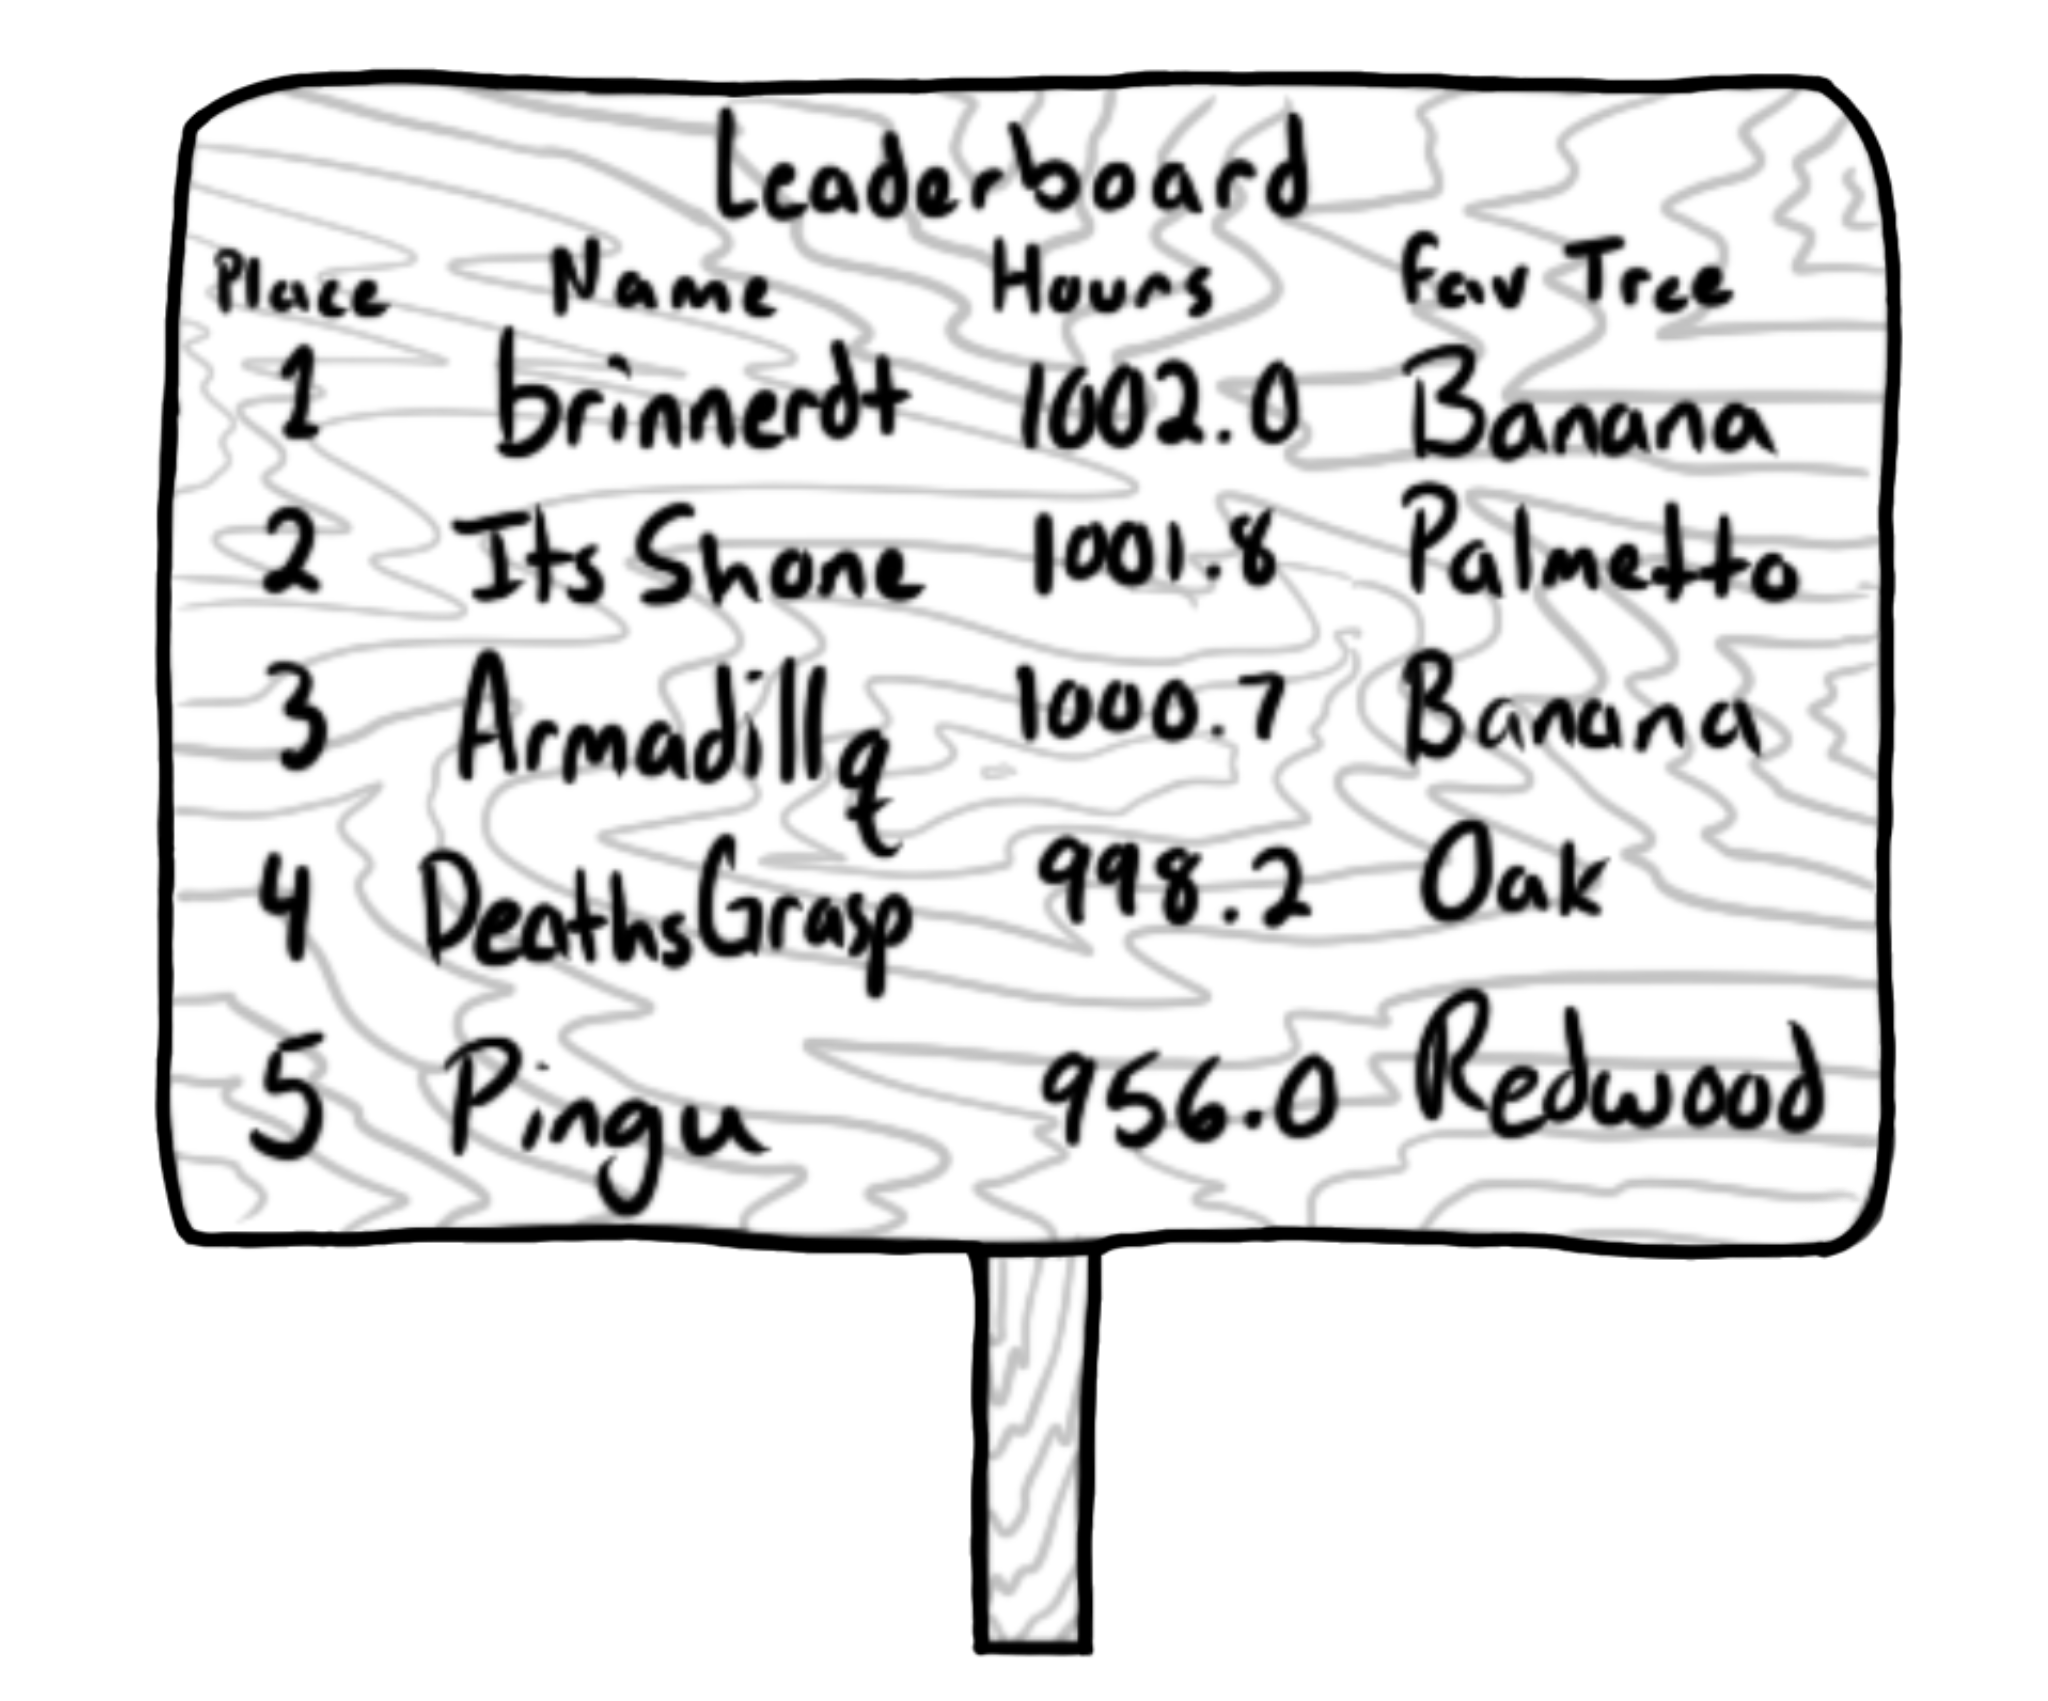 Leaderboard
Place Name Hours Fav Tree
1 brinnerdt 1002.0 Banana
2 Its Shane 1001.8 Palmetto
3 Armadillq 1000.7 Banana
4 DeathsGrasp 998.2 Oak
5 Pingu 956.0 Redwood